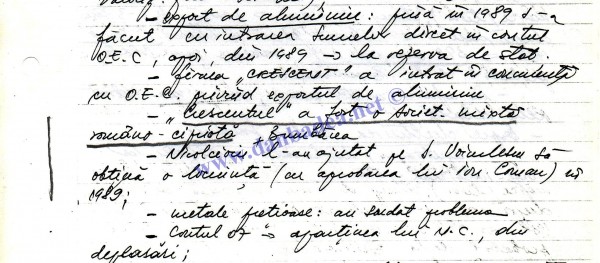 - export de aluminiu: pînă în 1989 s-a
făcut cu intrarea sumelor direct în contul
O.E.C, apoi, din 1989 → la rezerva de stat.
- firma "CRESCENT" a intrat în concurență
cu O.E.C. privind exportul de aluminiu
- "Crescentul" a fost o societ. mixtă
româno-cipriotă, Dumbrăvea
- l-au ajutat pe D. Voiculescu să
obțină o locuință (cu aprobarea lui Ion Coman) în
1989;
- metale prețioase: au soldat problema
- Contul 07 → aparținea lui N.C., din
deplasări;